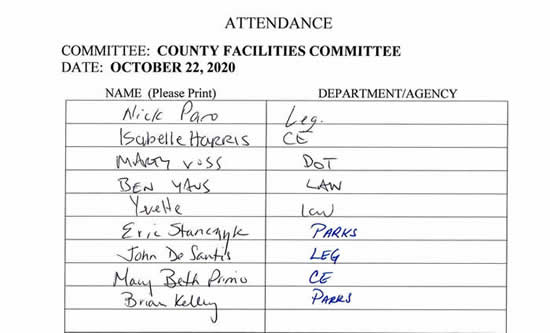 ATTENDANCE
COMMITTEE: COUNTY FACILITIES COMMITTEE
DATE: OCTOBER 22, 2020
NAME (Please Print) DEPARTMENT/AGENCY
Nick Paro Leg.
Isabelle HARRIS CE
MARTY VOSS DOT
BEN YAUS LAW
Yvette Law
Eric Stanczyk PARKS
John De Santis LEG
Mary Beth Primo CE
Brian Kelley PARKS